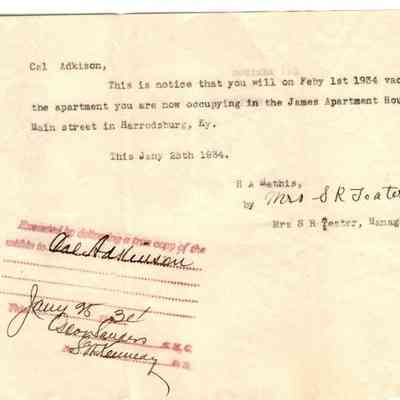 Cal Adkison,
This is notice that you will on Feby 1st 1934 vac
the apartment you are now occupying in the James Apartment Hou
Main street in Harrodsburg, Ky.
This Jany 25th 1934.
H A Mathis,
by Mrs S R Teater
Mrs S R Teater, Manag
Executed by delivering a true copy of the
within to Cal Adkinson
This Jany 25 34
S. M. C.
By S H Kennedy D. S.